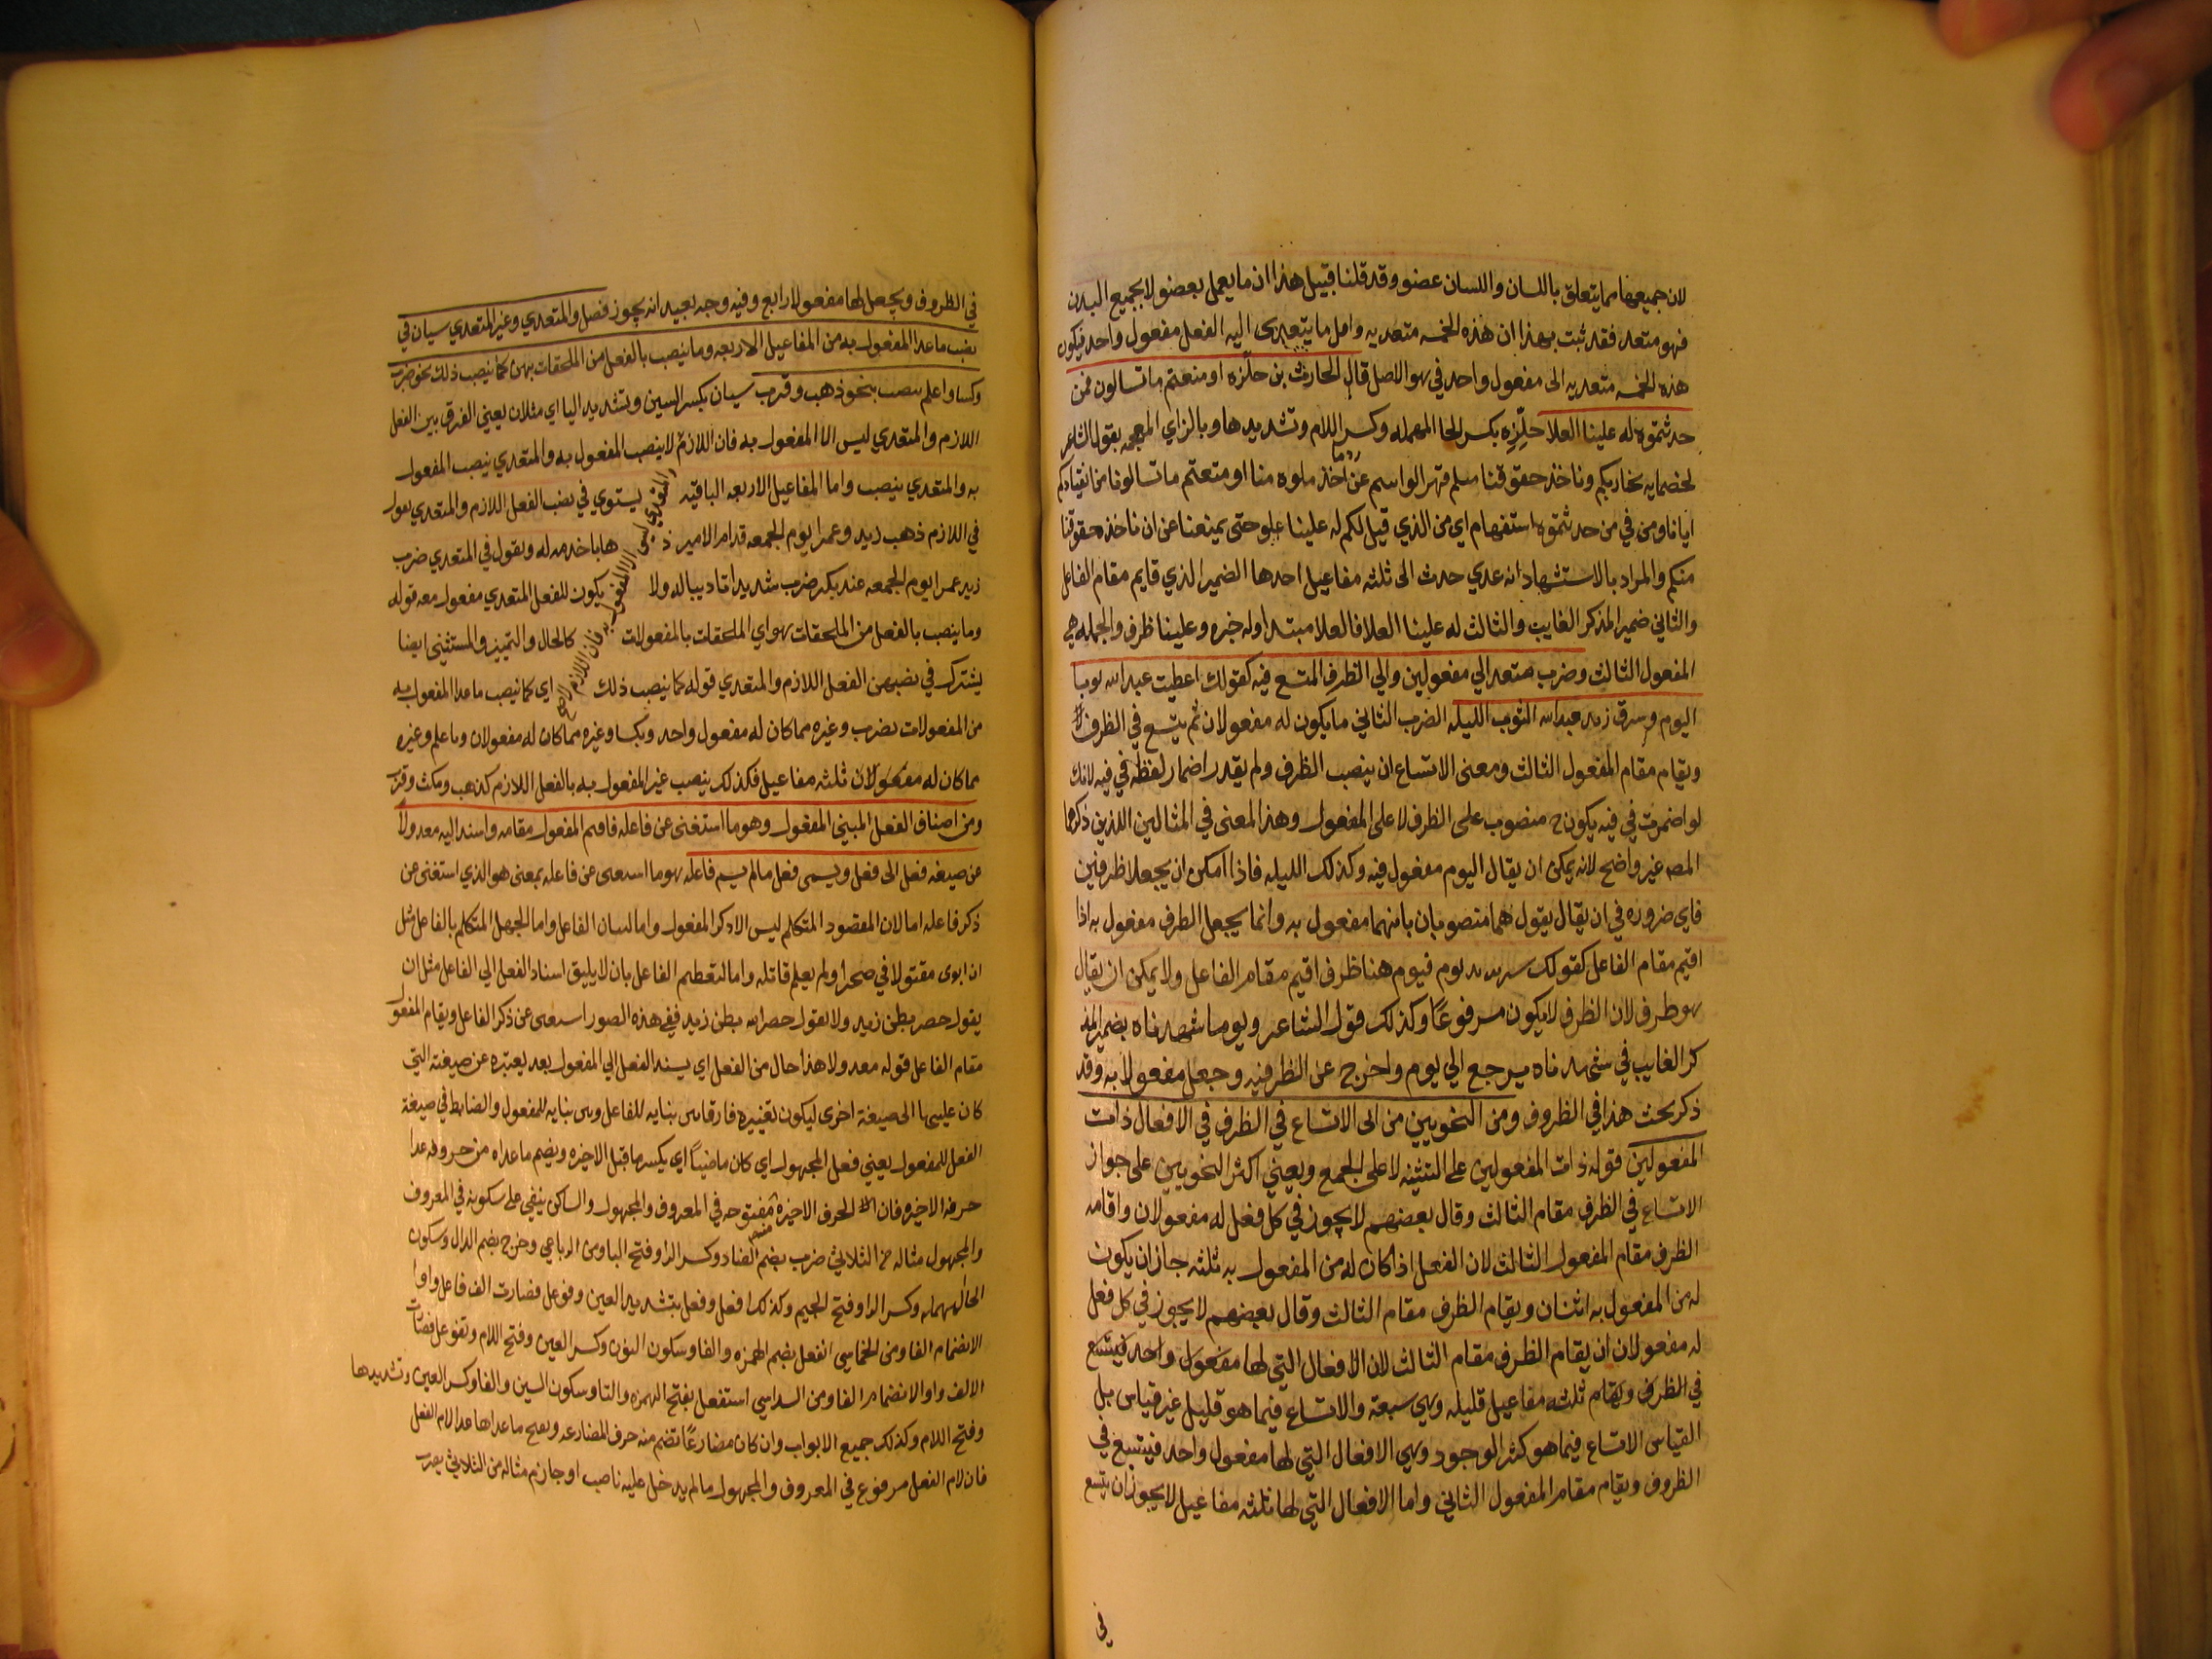 لان جميعها مما يتعلق باللسان واللسان عضو وقد قلنا قبيل هذا ان ما يعمل بعضو لا بجميع البدن
فهو متعد فقد ثبت بهذا ان هذه الخمسه متعديه واصل ما يتعدى اليه الفعل مفعول واحد فيكون
هذه الخمسه متعديه الى مفعول واحد في الاصل قال الحارث بن حلزه او منعتم ما تسالون فمن
حدثتموه له علينا العلا حلزه بكسر الحا المهمله وكسر اللام وتشديدها وبالزاي المعجمه يقول الشاعر
لخصمايه نحاربكم وناخذ حقوقنا او منعتم ما تسالونا من انقيادكم
ايانا ومن في من حدثتموه استفهام اي من الذي قيل لكم له علينا علو حتى يمنعنا عن ان ناخذ حقوقنا
منكم والمراد بالاستشهاد انه عدي حدث الى ثلثه مفاعيل احدها الضمير الذي قايم مقام الفاعل
والثاني ضمير المذكر الغايب والثالث له علينا العلا فالعلا مبتدا وله خبره وعلينا ظرف والجمله هي
المفعول الثالث وضرب متعد الي مفعولين والي الظرف المتسع فيه كقولك اعطيت عبد الله ثوبا
اليوم وسرق زيد عبد الله الثوب الليله الضرب الثاني ما يكون له مفعولان ثم يتسع في الظرف
ويقام مقام المفعول الثالث ومعنى الاتساع ان ينصب الظرف ولم يقدر اضمار لفظه في فيه لانك
لو اضمرت في فيه يكون ح منصوب على الظرف لا على المفعول وهذا المعنى في المثالين اللذين ذكرهما
المصـ غير واضح لانه يمكن ان يقال اليوم مفعول فيه وكذلك الليله فاذا امكن ان يجعلا ظرفين
فاي ضروره في ان يقال يقول هما منصوبان بانهما مفعول به وانما يجعل الظرف مفعول به اذا
اقيم مقام الفاعل كقولك يوم فيوم هنا ظرف اقيم مقام الفاعل ولا يمكن ان يقال
هو ظرف لان الظرف لا يكون مرفوعا وكذلك قول الشاعر ويوما شهدناه بضمير المذ
كر الغايب في شهدناه يرجع الي يوم واخرج عن الظرفيه وجعل مفعولا به وقد
ذكر بحث هذا في الظروف ومن النحويين من ابى الاتساع في الظرف في الافعال ذات
المفعولين قوله ذات المفعولين على التثنيه لا على الجمع ويعني اكثر النحويين على جواز
الاتساع في الظرف مقام الثالث وقال بعضهم لا يجوز في كل فعل له مفعولان واقامه
الظرف مقام المفعول الثالث لان الفعل اذا كان له من المفعول به ثلثه جاز ان يكون
له من المفعول به اثنان ويقام الظرف مقام الثالث وقال بعضهم لا يجوز في كل فعل
له مفعولان ان يقام الظرف مقام الثالث لان الافعال التي لها مفعول واحد فيتسع
في الظرف ويقام ثلثه مفاعيل قليله وهي سبعة والاتساع فيما هو قليل غير قياس بل
القياس الاتساع فيما هو كثر الوجود وهي الافعال التي لها مفعول واحد فيتسع في
الظروف ويقام مقام المفعول الثاني واما الافعال التي لها ثلثه مفاعيل لا يجوز ان يتسع
في
في الظروف ويجعل لها مفعولا رابع وفيه وجه بعيد انه يجوز فصل والمتعدي وغير المتعدي سيان في
نصب ما عدا المفعول به من المفاعيل الاربعه وما ينصب بالفعل من الملحقات بهن كما ينصب ذلك نحو ضرب
وكسا واعلم ينصب بنحو ذهب وقرب سيان بكسر السين وتشديد اليا اي مثلان يعني الفرق بين الفعل
اللازم والمتعدي ليس الا المفعول به فان اللازم لا ينصب المفعول به والمتعدي ينصب المفعول
به والمتعدي ينصب واما المفاعيل الاربعه الباقيه يستوي في نصب الفعل اللازم والمتعدي يقول
المتعدي ليس الا المفعول به فان اللازم لا
في اللازم ذهب زيد وعمرا يوم الجمعه قدام الامير ذهابا خدمه له ويقول في المتعدي ضرب
زيد عمرا يوم الجمعه عند بكر ضرب شديدا تاديبا له ولا يكون للفعل المتعدي مفعول معه قوله
وما ينصب بالفعل من الملحقات بهو اي الملحقات بالمفعولات كالحال والتمييز والمستثنى ايضا
يشترك في نصبهن الفعل اللازم والمتعدي قوله كما ينصب ذلك اي كما ينصب ما عدا المفعول به
من المفعولات بضرب وغيره مما كان له مفعول واحد وبكسا وغيره مما كان له مفعولان وباعلم وغيره
مما كان له مفعولان ثلثه مفاعيل فكذلك ينصب غير المفعول به بالفعل اللازم كذهب ومكث وقرب
ومن اصناف الفعل المبني المفعول وهو ما استغنى عن فاعله فاقيم المفعول مقامه واسند اليه معدولا
عن صيغه فعل الى فعل ويسمى فعل ما لم يسم فاعله هو ما استغنى عن فاعله بمعنى هو الذي استغنى عن
ذكر فاعله اما لان المقصود المتكلم ليس الا ذكر المفعول واما لنسيان الفاعل واما لجهل المتكلم بالفاعل مثل
ان ابوى مقتولا في صحرا ولم يعلم قاتله واما لتعظيم الفاعل بان لا يليق اسناد الفعل الي الفاعل مثل ان
يقول بطن زيد ولا يقول الله بطن زيد ففي هذه الصور استغنى عن ذكر الفاعل ويقام المفعول
مقام الفاعل قوله معدولا هذا حال من الفعل اي يسند الفعل الي المفعول بعد تغييره عن صيغته التي
كان عليها الى صيغة اخرى ليكون تغييره فارقا بين بنايه للفاعل وبين بنايه للمفعول والضابط في صيغة
الفعل للمفعول يعني فعل المجهول اي كان ماضيا اي يكسر ما قبل الاخيره ويضم ما عداه من حروفه عدا
حرفه الاخيره فان الحرف الاخيره مفتوحه في المعروف والمجهول والساكن يبقي على سكونه في المعروف
والمجهول مثاله من الثلاثي ضرب بضم الضاد وكسر الرا وفتح البا ومن الرباعي دحرج بضم الدال وسكون
الحا المهمله وكسر الرا وفتح الجيم وكذلك افعل وفعل بتشديد العين وفوعل فصارت الف فاعل واوا
لانضمام الفا ومن الخماسي انفعل بضم الهمزه والفا وسكون النون وكسر العين وفتح اللام وتفوعل فصارت
الالف واوا لانضمام الفا ومن السداسي استفعل بفتح الهمزه والتا وسكون السين والفا وكسر العين وتشديدها
وفتح اللام وكذلك جميع الابواب وان كان مضارعا تضم منه حرف المضارعه ويفتح ما عداها عدا لام الفعل
فان لام الفعل مرفوع في المعروف والمجهول ما لم يدخل عليه ناصب او جازم مثاله من الثلاثي يضرب